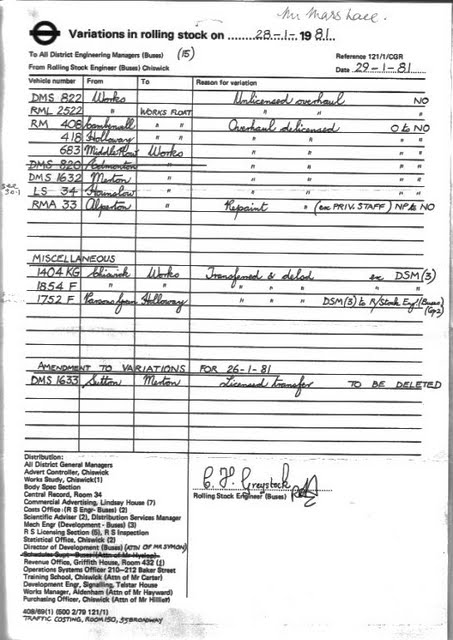 Mr Marshall.
Variations in rolling stock on 28-1-1981.
To All District Engineering Managers (Buses) (15)
Reference 121/1/CGR
From Rolling Stock Engineer (Buses) Chiswick
Date 29-1-81
Vehicle number From To Reason for variation
DMS 822 Works Unlicensed overhaul NO
RML 2522 " WORKS FLOAT " " "
RM 408 Camberwell " " Overhaul delicensed O to NO
418 Holloway " " " " "
683 Middle Row Works " " "
DMS 820 Edmonton " " " "
DMS 1632 Merton " " " "
see 30-1 LS 34 Hounslow " " " "
RMA 33 Alperton " Repaint " (ex PRIV. STAFF) NP to NO
MISCELLANEOUS
1404 KG Chiswick Works Transferred & delsd ex DSM (3)
1854 F " " " " " "
1752 F Parsons Green Holloway " " DSM(3) to R/Stock Eng'(Buses) (Gp2)
AMENDMENT TO VARIATIONS FOR 26-1-81
DMS 1633 Sutton Merton Licensed transfer TO BE DELETED
Distribution:
All District General Managers
Advert Controller, Chiswick
Works Study, Chiswick(1)
Body Spec Section
Central Record, Room 34
Commercial Advertising, Lindsay House (7)
Costs Office (R S Engr- Buses) (2)
Scientific Adviser (2), Distribution Services Manager
Mech Engr (Development - Buses) (3)
R S Licensing Section (5), R S Inspection
Statistical Office, Chiswick (2)
Director of Development (Buses) (ATTN OF MR SYMON)
Schedules Supt - Buses (Attn of Mr Hyslop)
Revenue Office, Griffith House, Room 432 (1)
Operations Systems Officer 210-212 Baker Street
Training School, Chiswick (Attn of Mr Carter)
Development Engr, Signalling, Telstar House
Works Manager, Aldenham (Attn of Mr Hayward)
Purchasing Officer, Chiswick (Attn of Mr Hillier)
C. H. Greystock
Rolling Stock Engineer (Buses)
408/89(1) (500 2/79 121/1)
TRAFFIC COSTING, ROOM 150, 55 BROADWAY